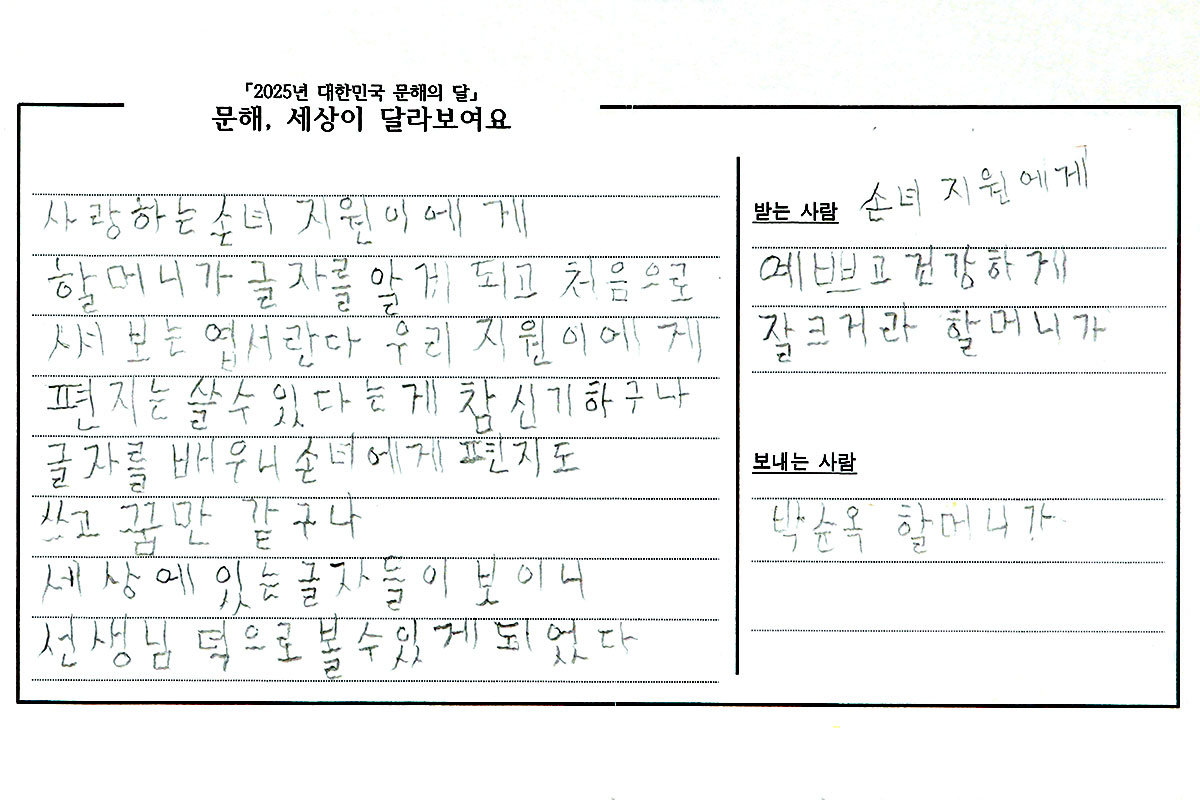 「2025년 대한민국 문해의 달」
문해, 세상이 달라보여요
사랑하는 손녀 지원이에게
할머니가 글자를 알게 되고 처음으로
써 보는 엽서란다 우리 지원이에게
편지는 쓸수있다는게 참 신기하구나
글자를 배우니 손녀에게 편지도
쓰고 꿈만 같구나
세상에 있는 글자들이 보이니
선생님 덕으로 볼수있게 되었다
받는 사람 손녀 지원에게
예쁘고 건강하게
잘크거라 할머니가
보내는 사람
박순옥 할머니가